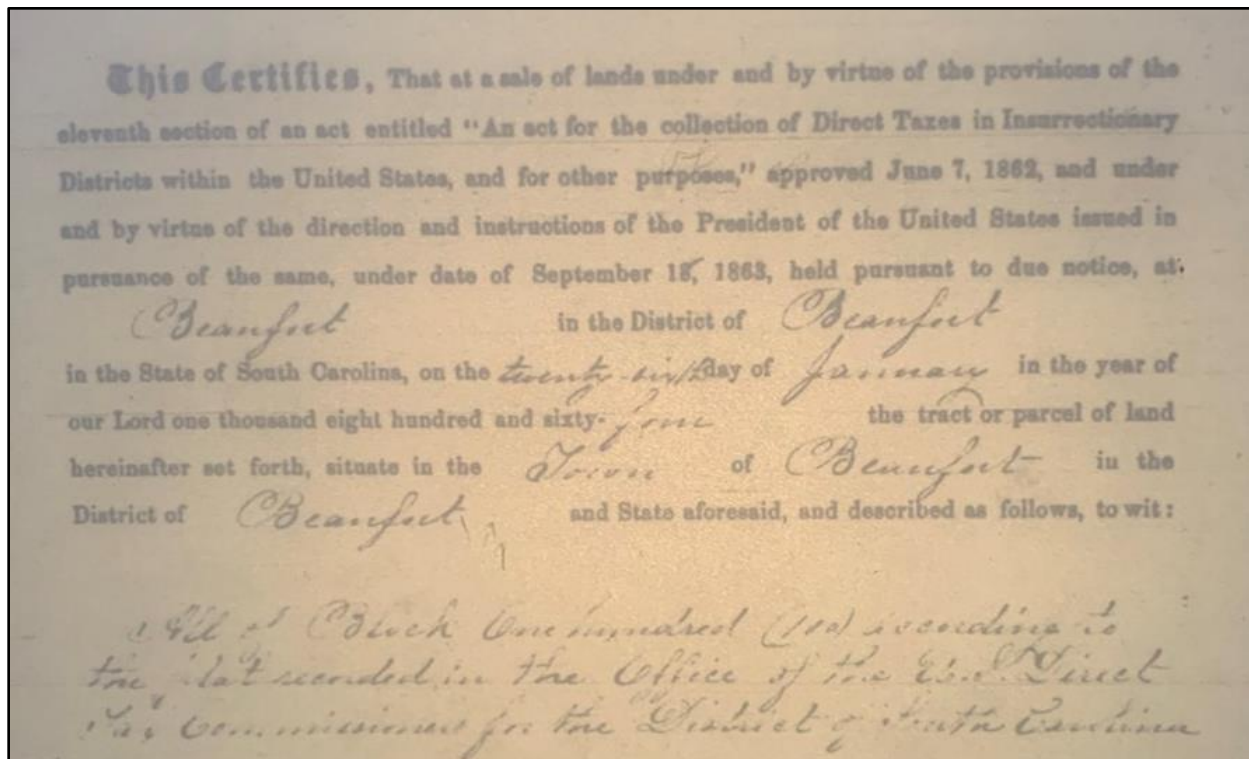 This Certifies, That at a sale of lands under and by virtue of the provisions of the
eleventh section of an act entitled "An act for the collection of Direct Taxes in Insurrectionary
Districts within the United States, and for other purposes," approved June 7, 1862, and under
and by virtue of the direction and instructions of the President of the United States issued in
pursuance of the same, under date of September 16, 1863, held pursuant to due notice, at
Beaufort in the District of Beaufort
in the State of South Carolina, on the twenty sixth day of January in the year of
our Lord one thousand eight hundred and sixty-four the tract or parcel of land
hereinafter set forth, situate in the Town of Beaufort in the
District of Beaufort and State aforesaid, and described as follows, to wit:
All of Block One hundred (100) according to
the plat recorded in the Office of the Direct
Tax Commissioners for the District of South Carolina